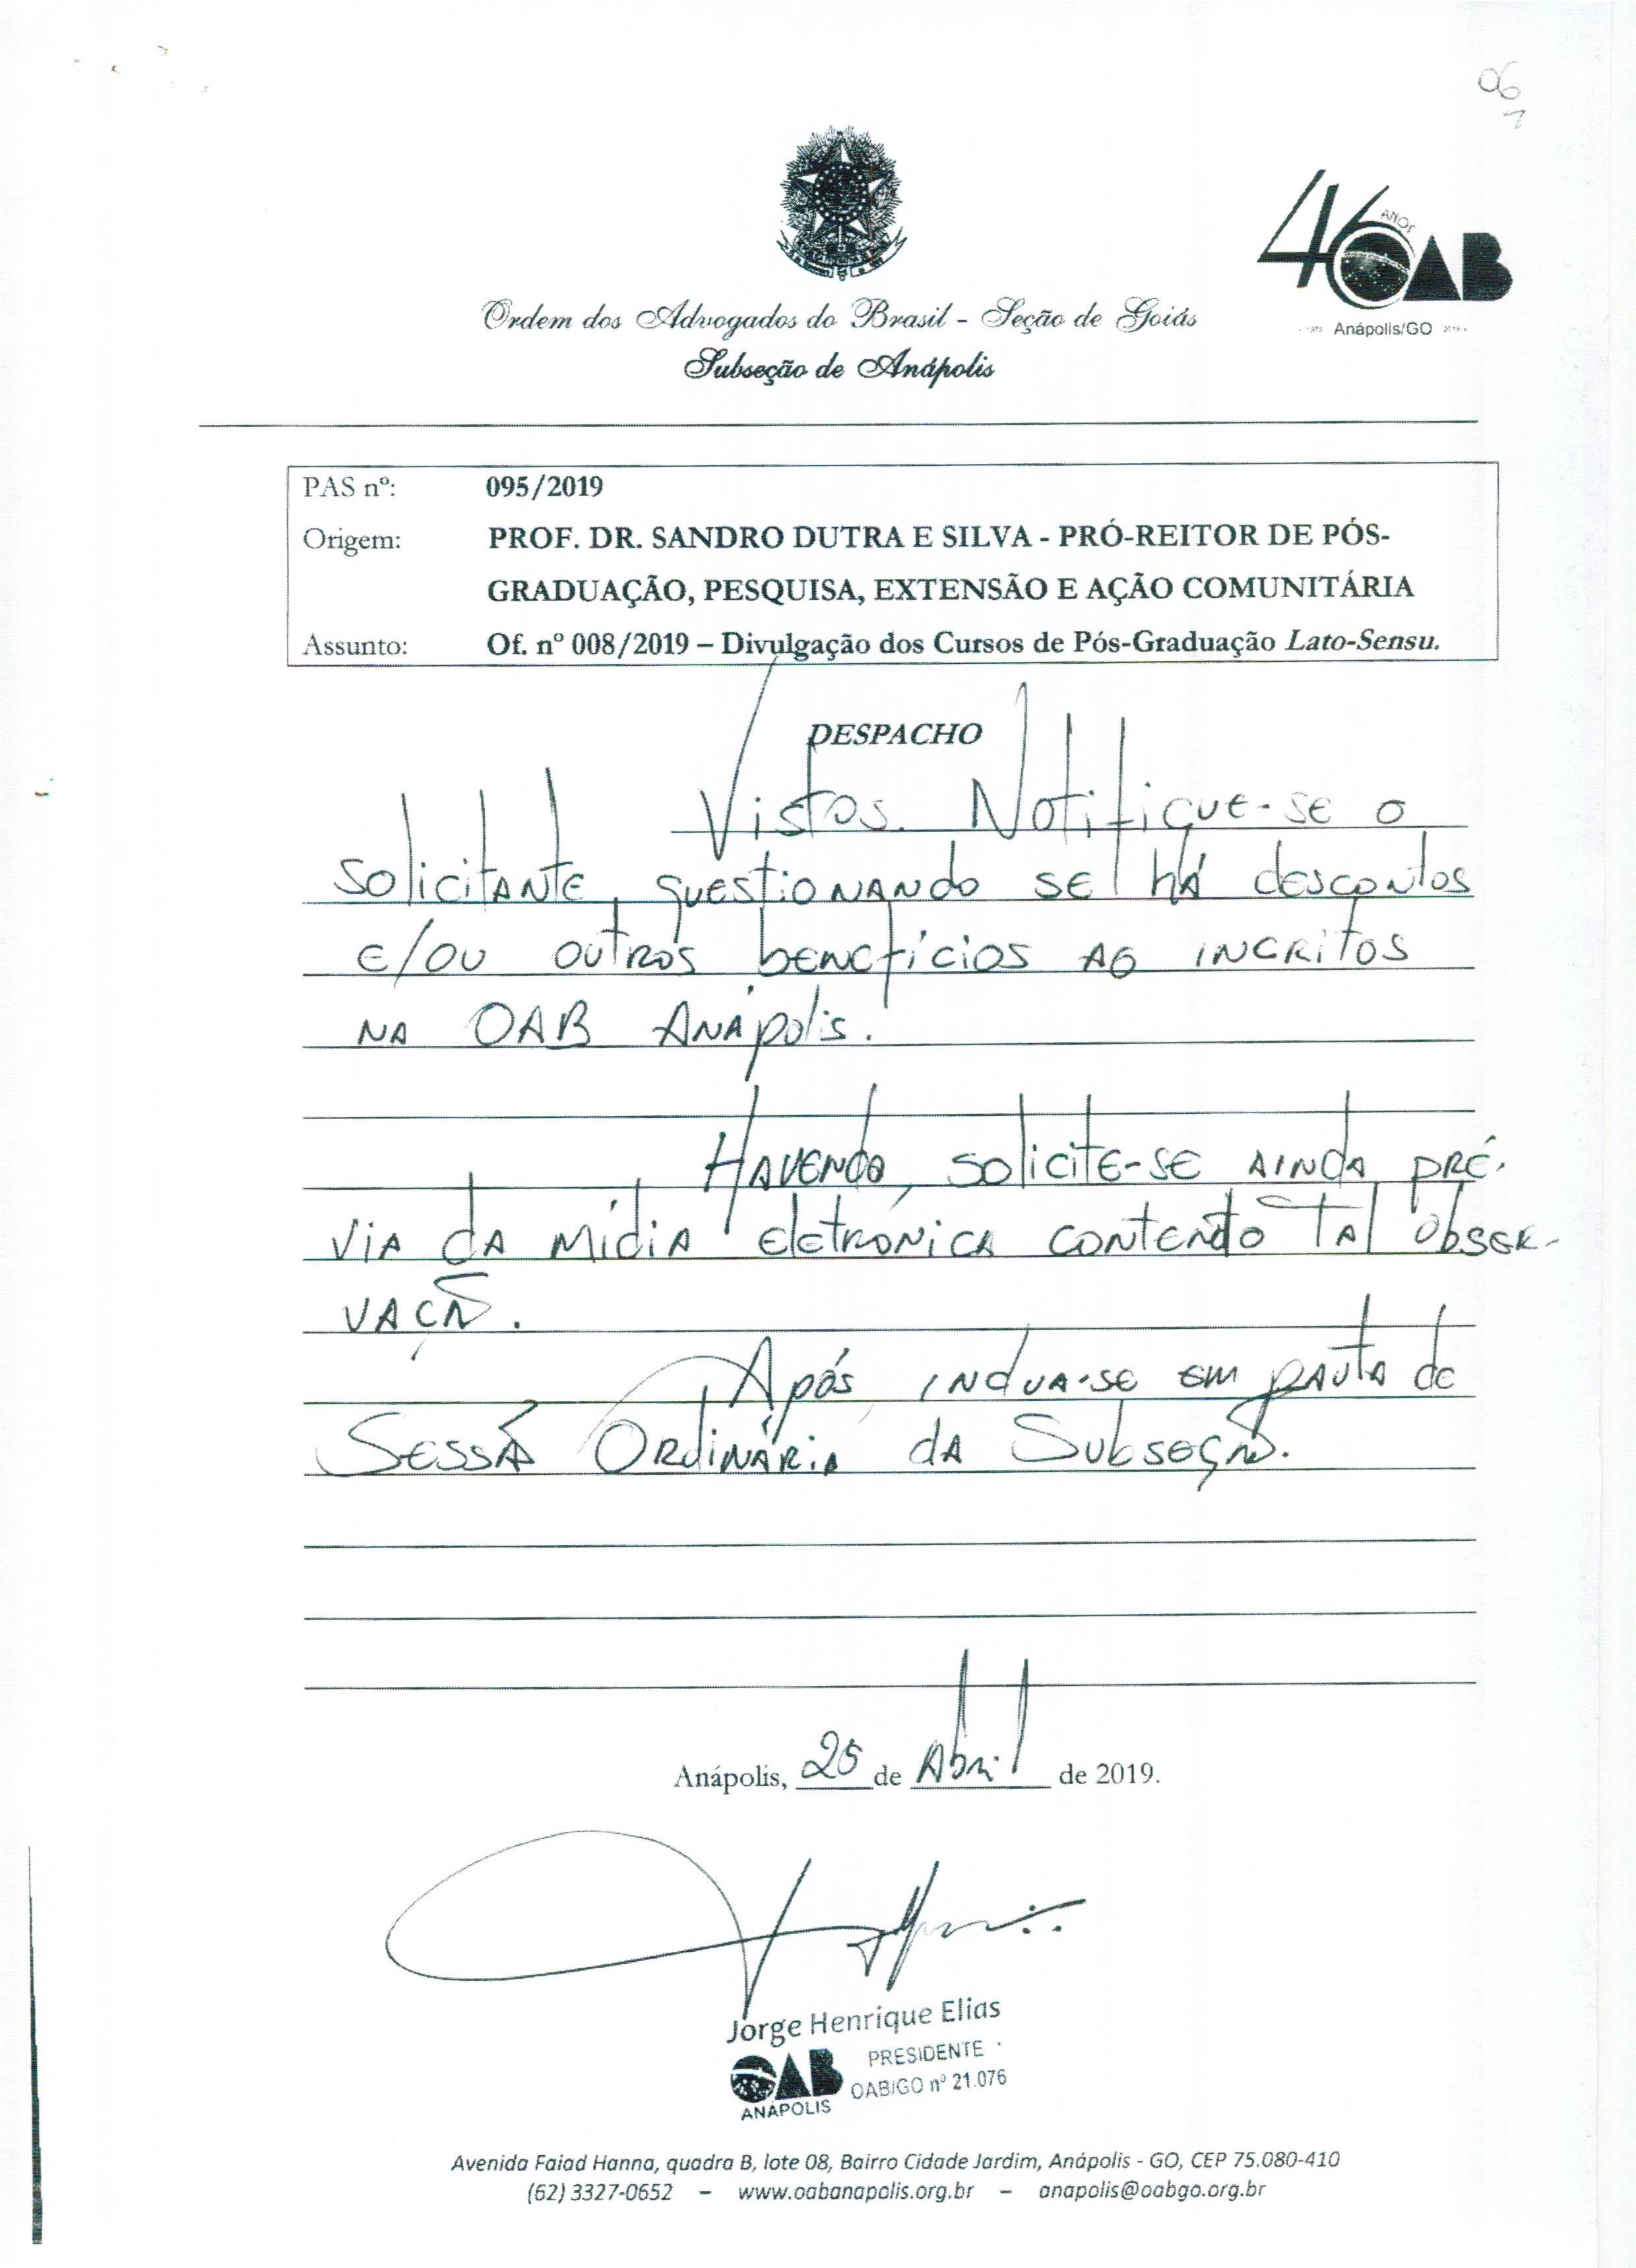 06
46 ANOS OAB
Anápolis/GO
Ordem dos Advogados do Brasil - Seção de Goiás
Subseção de Anápolis
PAS nº: 095/2019
Origem: PROF. DR. SANDRO DUTRA E SILVA - PRÓ-REITOR DE PÓS-
GRADUAÇÃO, PESQUISA, EXTENSÃO E AÇÃO COMUNITÁRIA
Assunto: Of. nº 008/2019 – Divulgação dos Cursos de Pós-Graduação Lato-Sensu.
DESPACHO
Vistos. Notifique-se o
solicitante, questionando se há descontos
e/ou outros benefícios ao incritos
na OAB Anápolis.
Havendo, solicite-se ainda pré-
via da mídia eletrônica contendo tal obser-
vação.
Após, inclua-se em pauta de
Sessão Ordinária da Subseção.
Anápolis, 25 de Abril de 2019.
Jorge Henrique Elias
PRESIDENTE
OAB/GO nº 21.076
OAB
ANÁPOLIS
Avenida Faiad Hanna, quadra B, lote 08, Bairro Cidade Jardim, Anápolis - GO, CEP 75.080-410
(62) 3327-0652 – www.oabanapolis.org.br – anapolis@oabgo.org.br